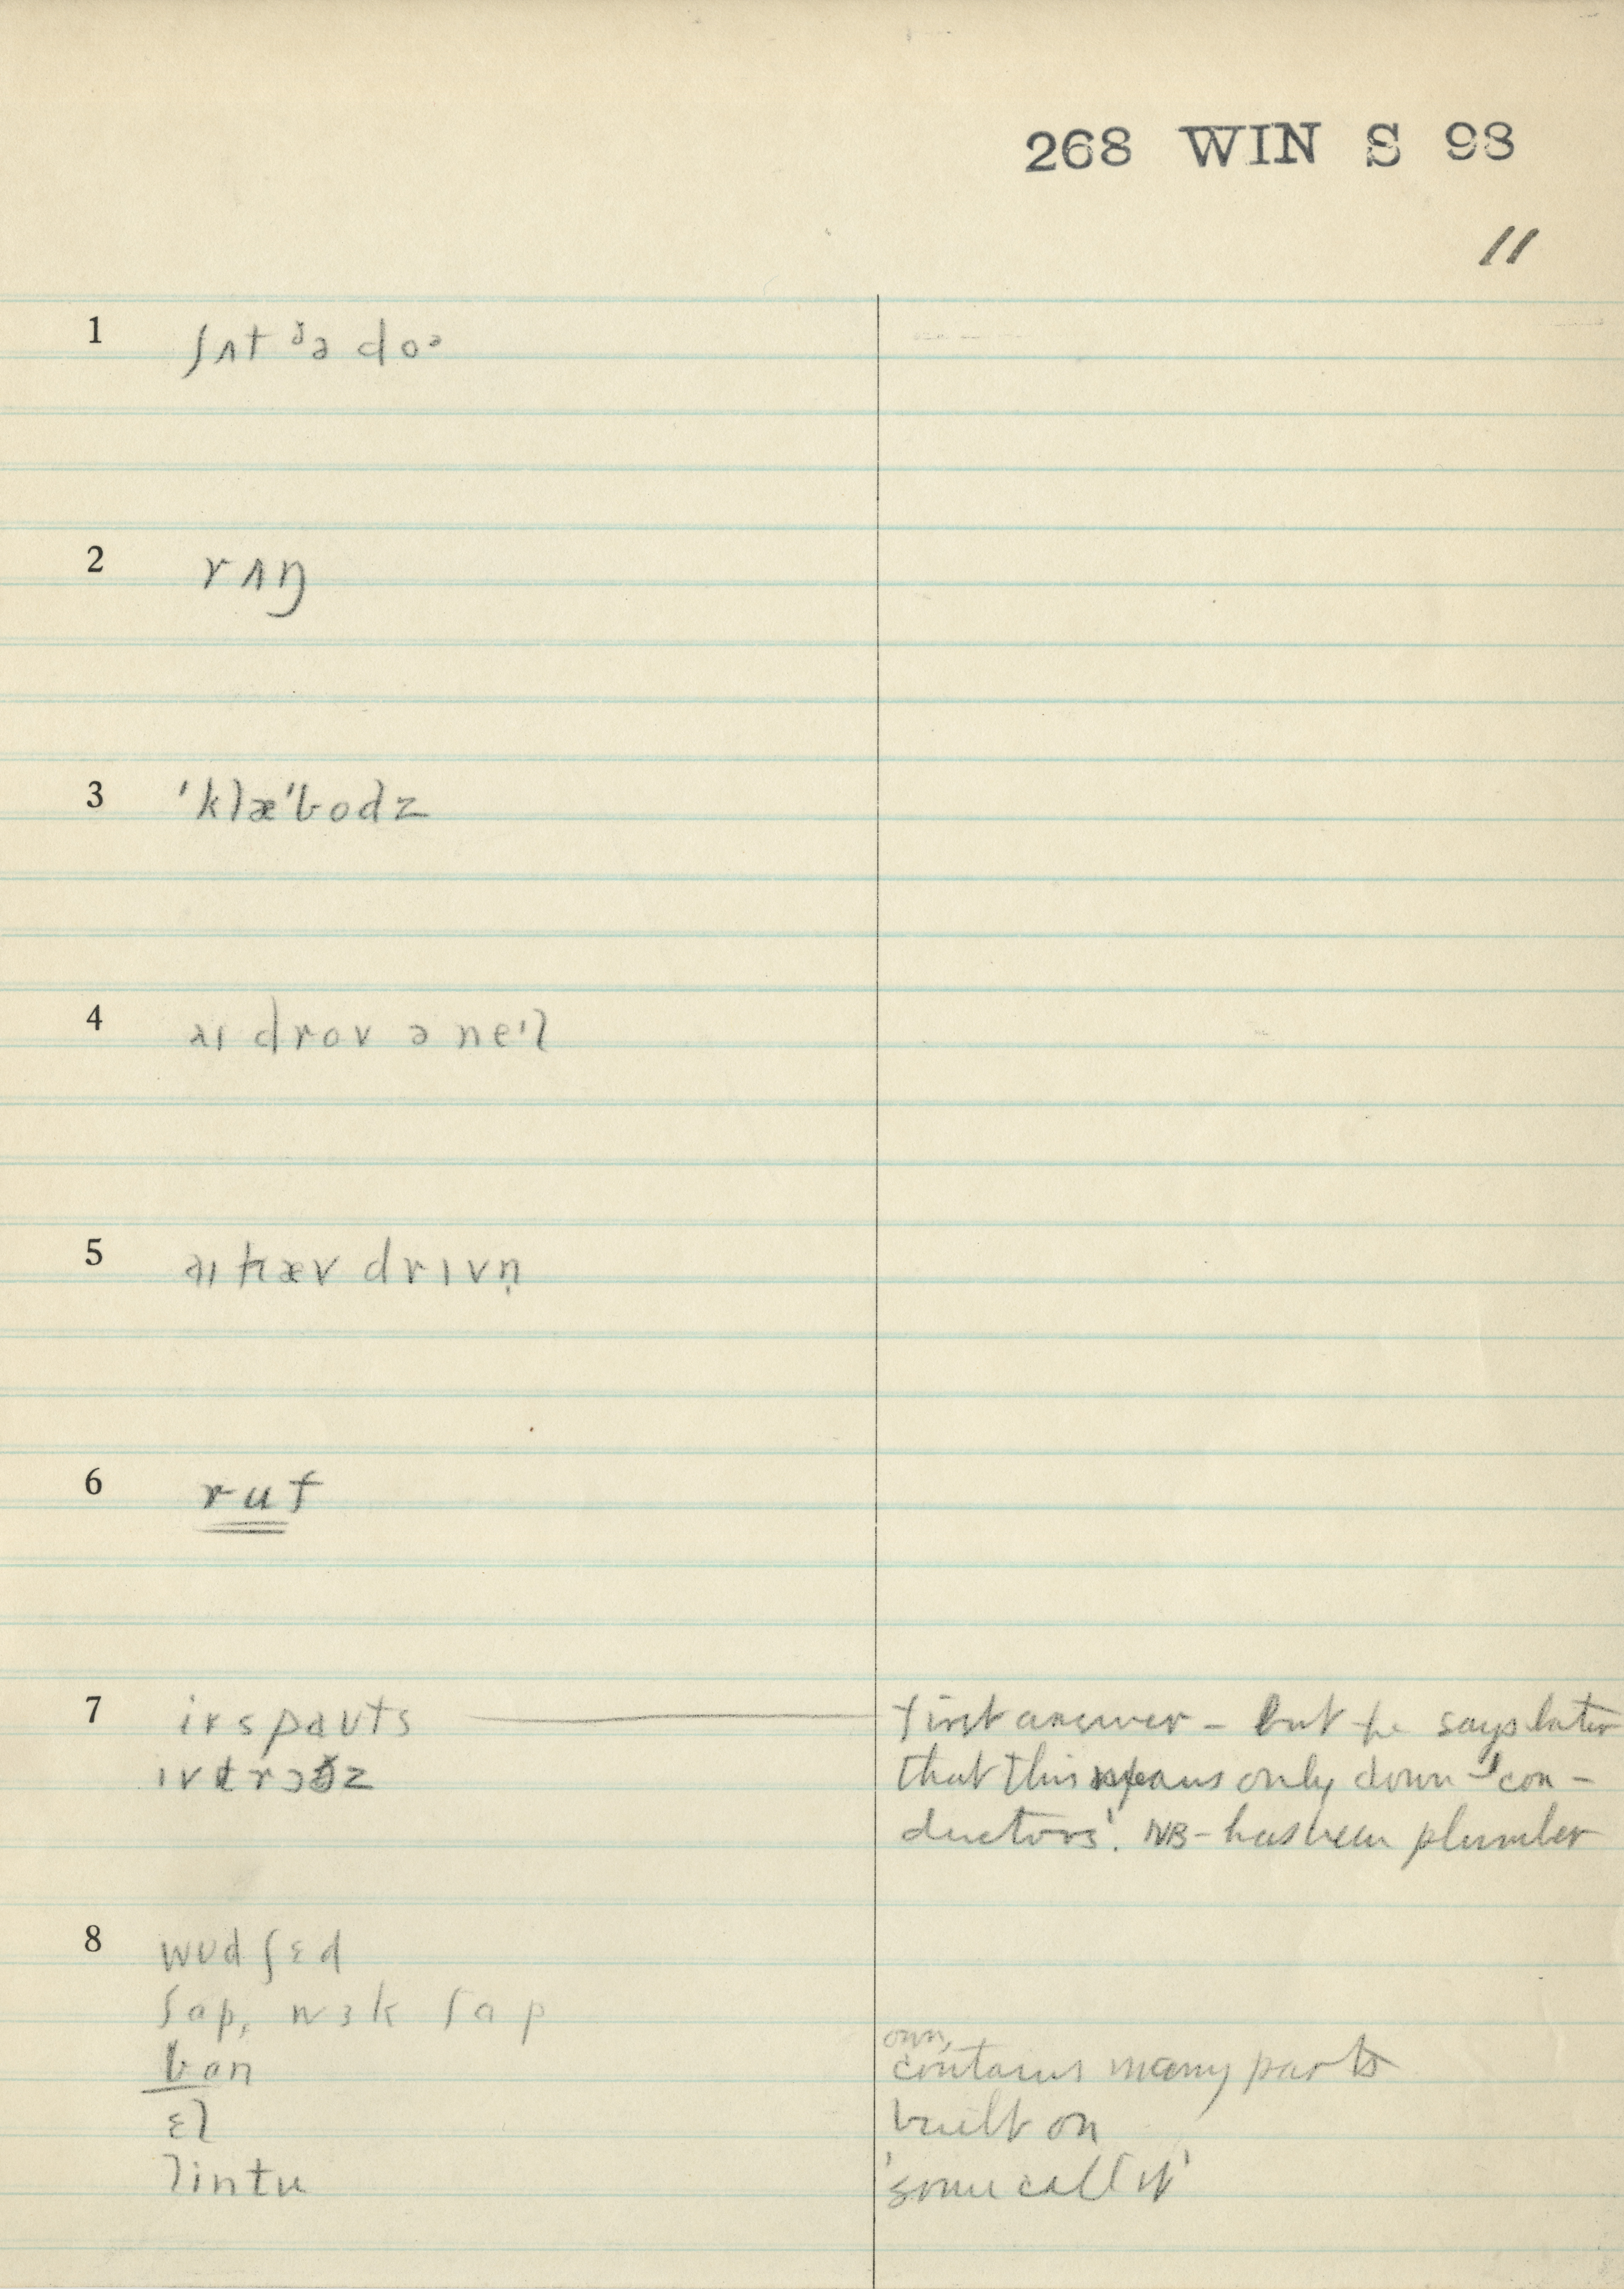 268 WIN S 98
11
1 ʃʌt ðə doᵊ
2 rʌŋ
3 'klæ'bodz
4 aɪ drov ə ne'l
5 aɪ hæv drɪvn̩
6 ruf
7 ivspaʊts first answer - but he says later
ɪvtrɔðz that this means only down-'con-
ductors'. NB - has been plumber
8 wʊdʃɛd
ʃap, wɜk ʃap
own,
ban contains many parts
ɛl built on
lintu 'some call it'